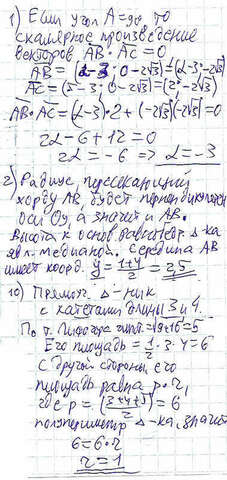 1) Если угол A=90, то
скалярное произведение
векторов AB · AC = 0
AB = (2-3; 0-2√3) = (2-3; -2√3)
AC = (5-3; 0-2√3) = (2; -2√3)
AB·AC = (2-3)·2 + (-2√3)(-2√3) = 0
22-6+12=0
22=-6 => 2=-3
2) Радиус, пересекающий
хорду AB, будет перпендикулярен
оси Oy, а значит и AB.
Высота к основ. равнобедр. Δ-ка
явл. медианой. Середина AB
имеет коорд. y = 1+4/2 = 2,5
10) Прямоуг. Δ-ник
с катетами длины 3 и 4.
По т. Пифагора гипот. = √9+16 = 5
Его площадь = 1/2 · 3 · 4 = 6
С другой стороны, его
площадь равна p · r,
где p = (3+4+5/2) = 6
полупериметр Δ-ка, значит
6=6·r
r=1